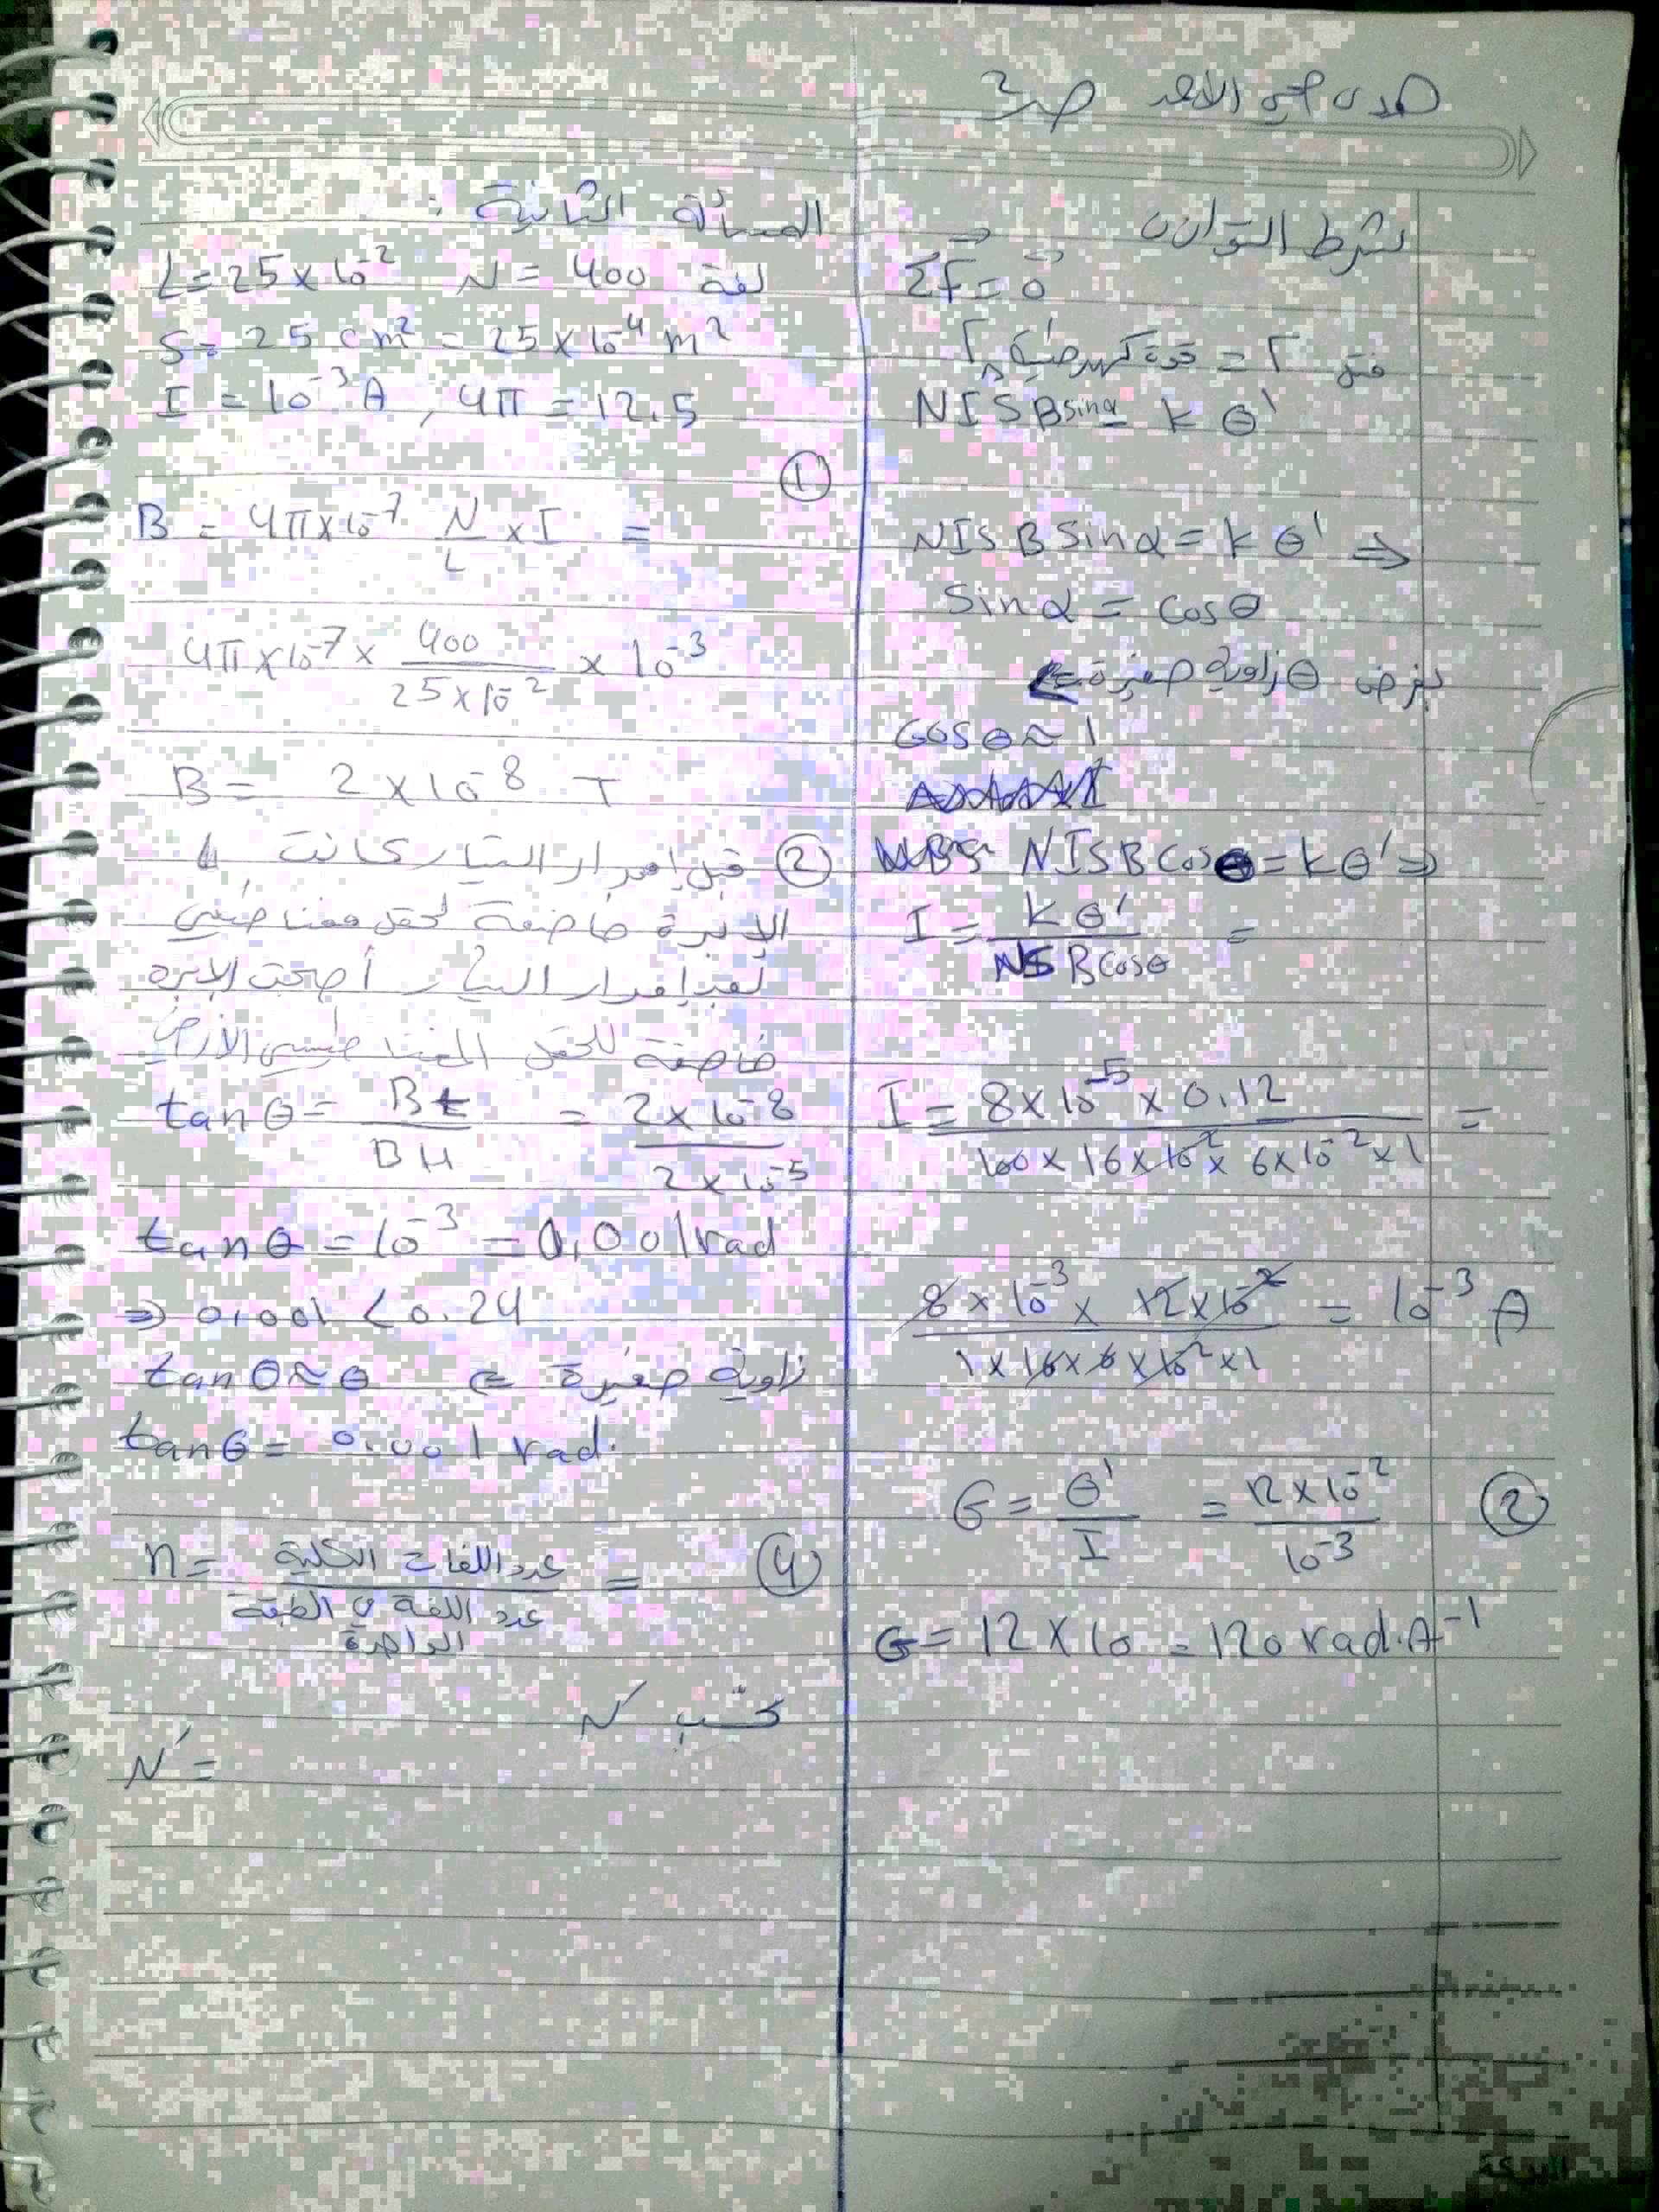 شرط التوازن
Σf = 0
NISBsinα = kθ'
NISBSinα = kθ' ⇒
Sinα = cosθ
بفرض θ زاوية صغيرة ⇐
cosθ ≈ 1
NISBCosθ = kθ' ⇒
I = kθ' / NSBCosθ =
I = 8×10⁻⁵ × 0.12 / 100×16×10⁻²×6×10⁻²×1 =
8×10⁻³ × 12×10⁻² / 1×16×6×10⁻²×1 = 10⁻³ A
② G = θ' / I = 12×10⁻² / 10⁻³
G = 12×10 = 120 rad.A⁻¹
المسألة الثانية :
L = 25×10⁻² N = 400 لفة
S = 25 cm² = 25×10⁻⁴ m²
I = 10⁻³ A , 4π = 12.5
①
B = 4π×10⁻⁷ N/L × I =
4π×10⁻⁷ × 400 / 25×10⁻² × 10⁻³
B = 2×10⁻⁸ T
② قبل إمرار التيار كانت
الإبرة خاضعة لحقل مغناطيسي
بعد إمرار التيار أصبحت الإبرة
خاضعة للحقل المغناطيسي الأرضي
tanθ = Bt / BH = 2×10⁻⁸ / 2×10⁻⁵
tanθ = 10⁻³ = 0,001 rad
⇒ 0,001 < 0.24
tanθ ≈ θ ⇐ زاوية صغيرة
tanθ = 0.001 rad.
④ n = عدد اللفات الكلية / عدد اللفة في الطبقة الواحدة =
نحسب N'
N' =